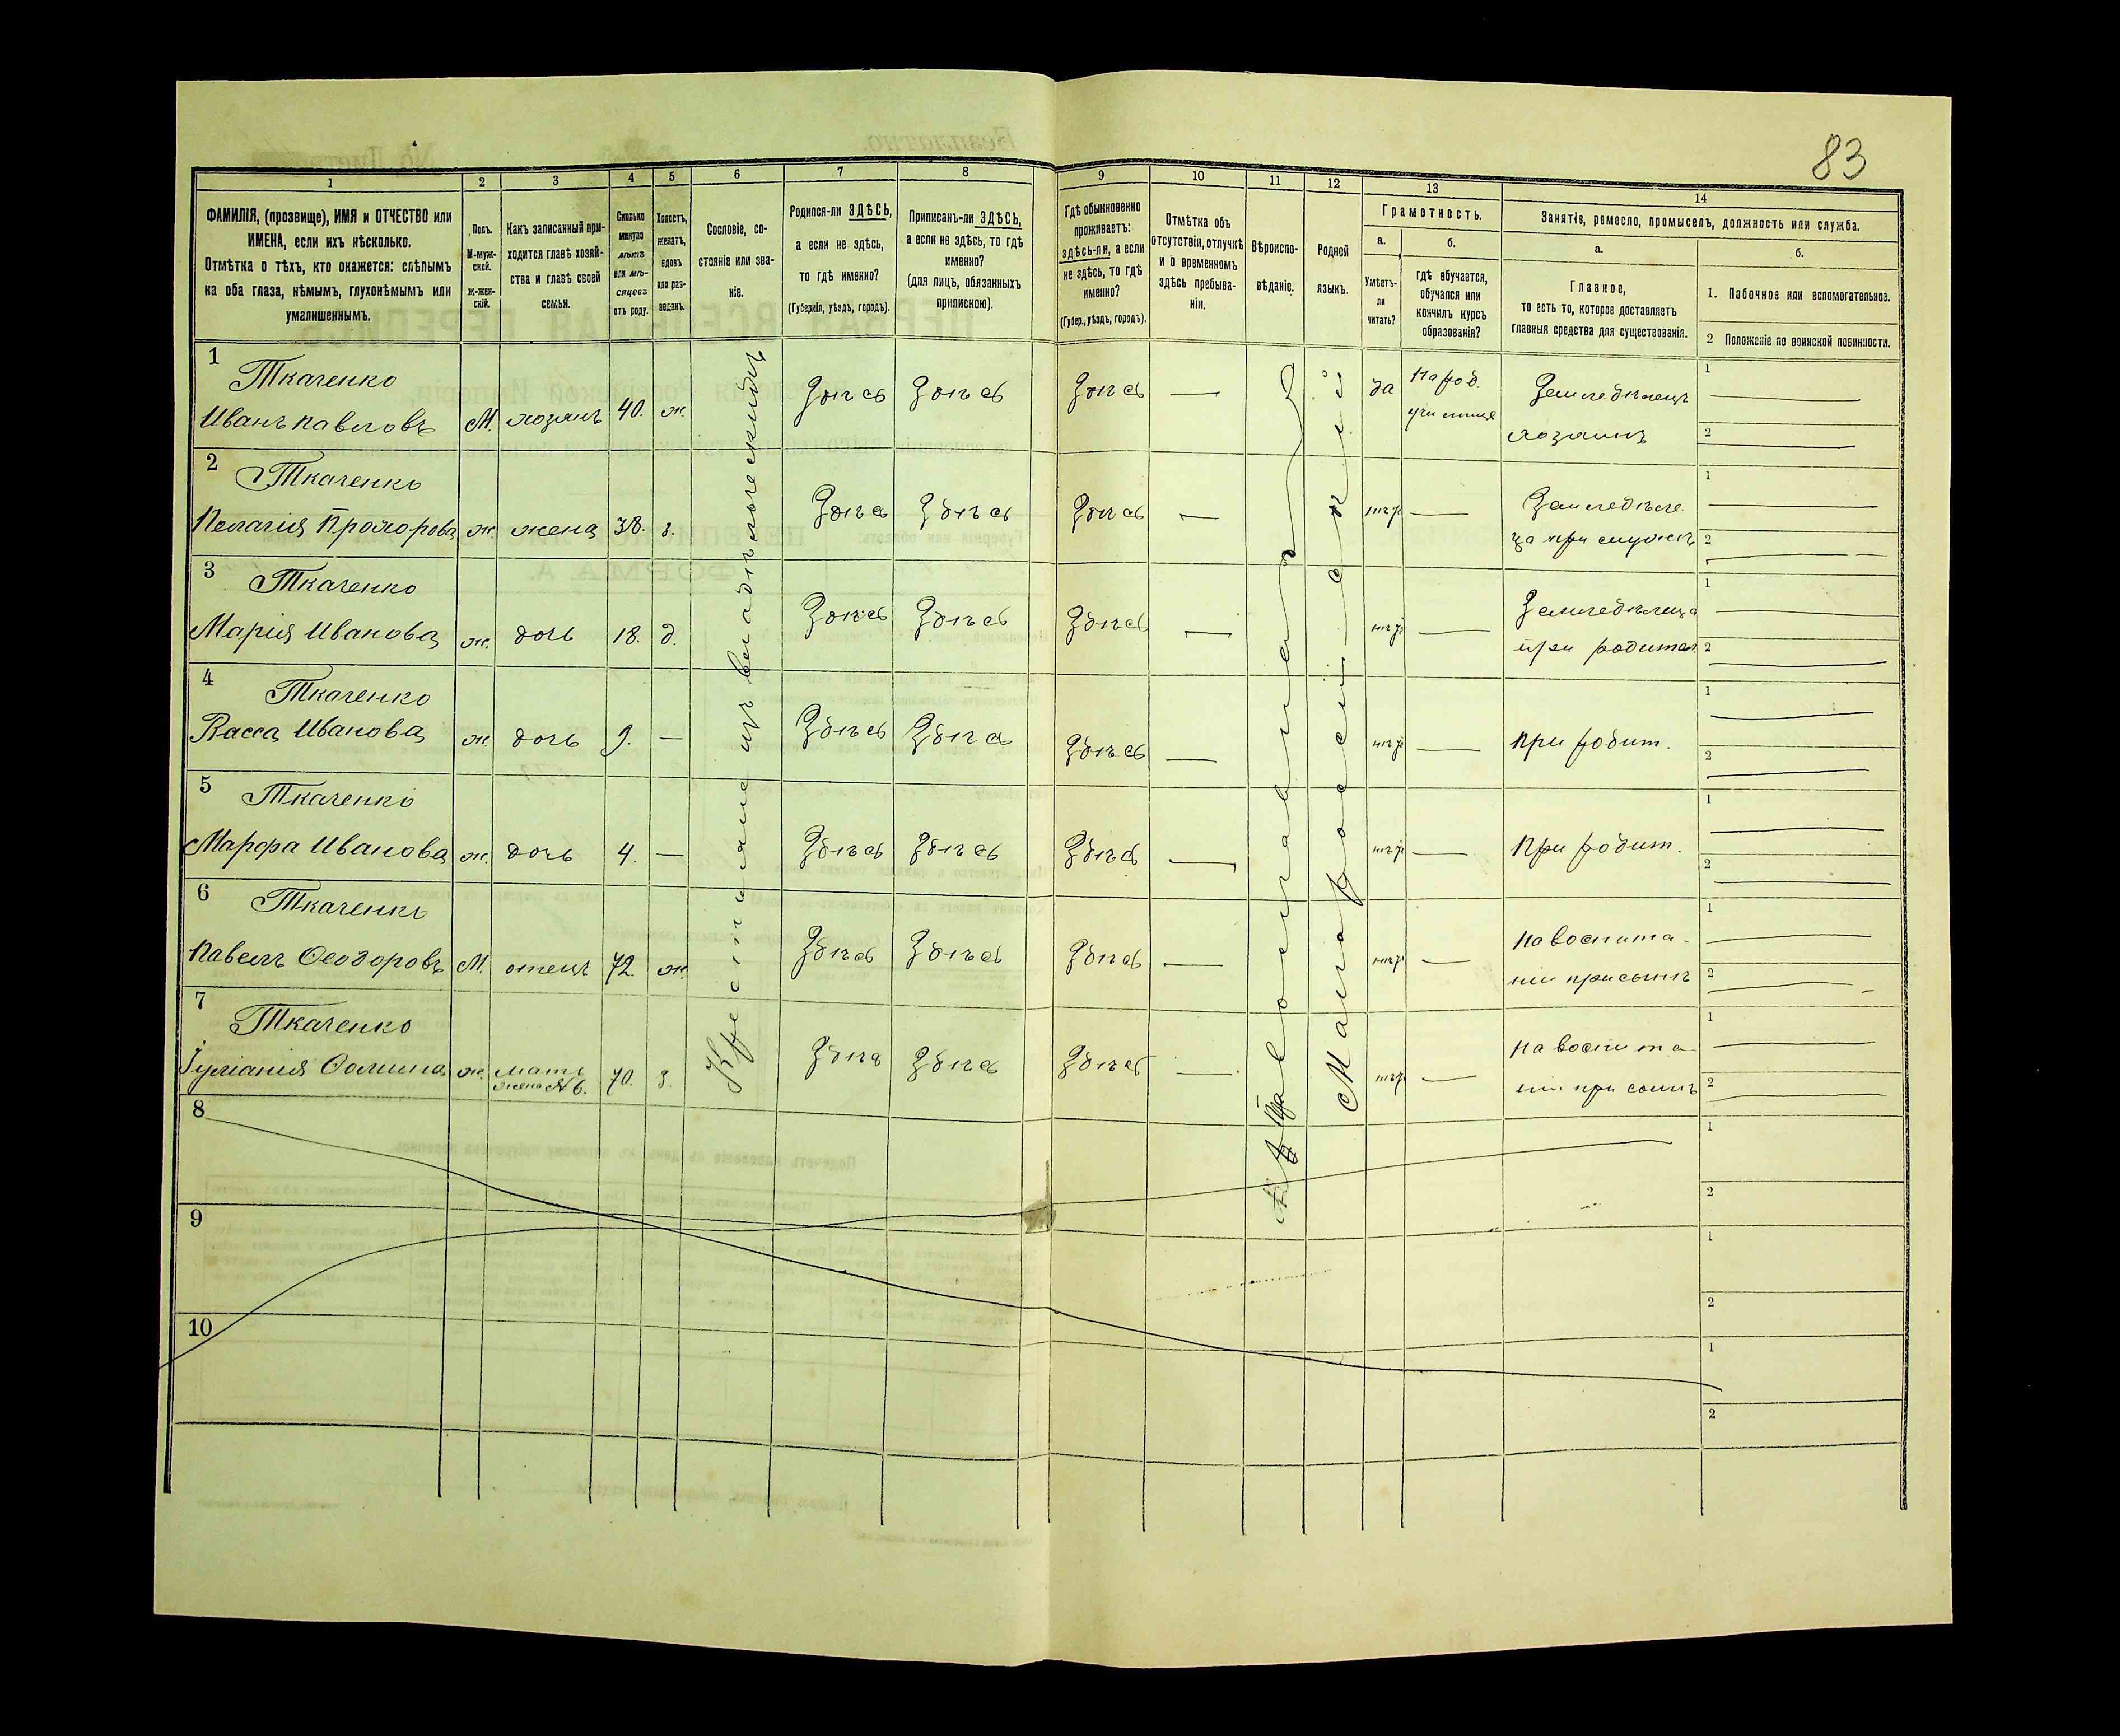 83
1
2
3
4
5
6
7
8
9
10
11
12
13
14
ФАМИЛІЯ, (прозвище), ИМЯ и ОТЧЕСТВО или
ИМЕНА, если ихъ нѣсколько.
Отмѣтка о тѣхъ, кто окажется: слѣпымъ
на оба глаза, нѣмымъ, глухонѣмымъ или
умалишеннымъ.
Полъ.
М-муж-
ской.
ж-жен-
скій.
Какъ записанный при-
ходится главѣ хозяй-
ства и главѣ своей
семьи.
Сколько
минуло
лѣтъ
или мѣ-
сяцевъ
отъ роду.
Холостъ,
женатъ,
вдовъ
или раз-
веденъ.
Сословіе, со-
стояніе или зва-
ніе.
Родился-ли ЗДѢСЬ,
а если не здѣсь,
то гдѣ именно?
(Губернія, уѣздъ, городъ).
Приписанъ-ли ЗДѢСЬ,
а если не здѣсь, то гдѣ
именно?
(для лицъ, обязанныхъ
припискою).
Гдѣ обыкновенно
проживаетъ:
здѣсь-ли, а если
не здѣсь, то гдѣ
именно?
(Губер., уѣздъ, городъ).
Отмѣтка объ
отсутствіи, отлучкѣ
и о временномъ
здѣсь пребыва-
ніи.
Вѣроиспо-
вѣданіе.
Родной
языкъ.
Грамотность.
а.
Умѣетъ-
ли
читать?
б.
гдѣ обучается,
обучался или
кончилъ курсъ
образованія?
Занятіе, ремесло, промыселъ, должность или служба.
а.
Главное,
то есть то, которое доставляетъ
главныя средства для существованія.
б.
1. Побочное или вспомогательное.
2 Положеніе по воинской повинности.
Крестьяне изъ владѣльческихъ
Православная
Малороссійскій
1
Ткаченко
Иванъ Павловъ М. хозяинъ 40. ж. Здѣсь Здѣсь Здѣсь — да Народ. Земледѣлецъ 1
училище хозяинъ 2
2
Ткаченко
Пелагія Прохорова ж. жена 38. з. Здѣсь Здѣсь Здѣсь — — 1
2
3
Ткаченко
Марія Иванова ж. дочь 18. д. Здѣсь Здѣсь Здѣсь — — Земледѣлица 1
при родител 2
4
Ткаченко
Васса Иванова ж. дочь 9. — Здѣсь Здѣсь Здѣсь — — при родит. 1
2
5
Ткаченко
Марфа Иванова ж. дочь 4. — Здѣсь Здѣсь Здѣсь — — При родит. 1
2
6
Ткаченко
Павелъ Ѳеодоровъ М. отецъ 72 ж. Здѣсь Здѣсь Здѣсь — — На воспита- 1
ніи при сынѣ 2
7
Ткаченко
Іуліанія Ѳомина ж. мать 70. з. Здѣсь Здѣсь Здѣсь — — На воспита- 1
жена №6. ніи при сынѣ 2
8
1
2
9
1
2
10
1
2